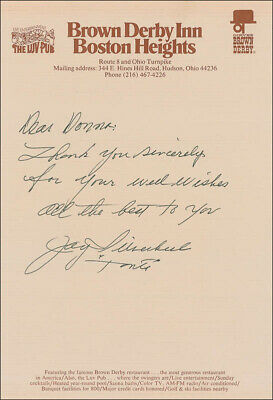 THE LUV PUB
Brown Derby Inn
Boston Heights
Route 8 and Ohio Turnpike
Mailing address: 344 E. Hines Hill Road, Hudson, Ohio 44236
Phone (216) 467-4226
BROWN
DERBY
Dear Donna:
Thank you sincerely
for your well wishes
all the best to you
Jay Silverheels
"Tonto"
Featuring the famous Brown Derby restaurant . . . the most generous restaurant
in America/Also, the Luv Pub . . . where the swingers are/Live entertainment/Sunday
cocktails/Heated year-round pool/Sauna baths/Color TV, AM-FM radio/Air conditioned/
Banquet facilities for 800 . . . Major credit cards honored/Golf & ski facilities nearby